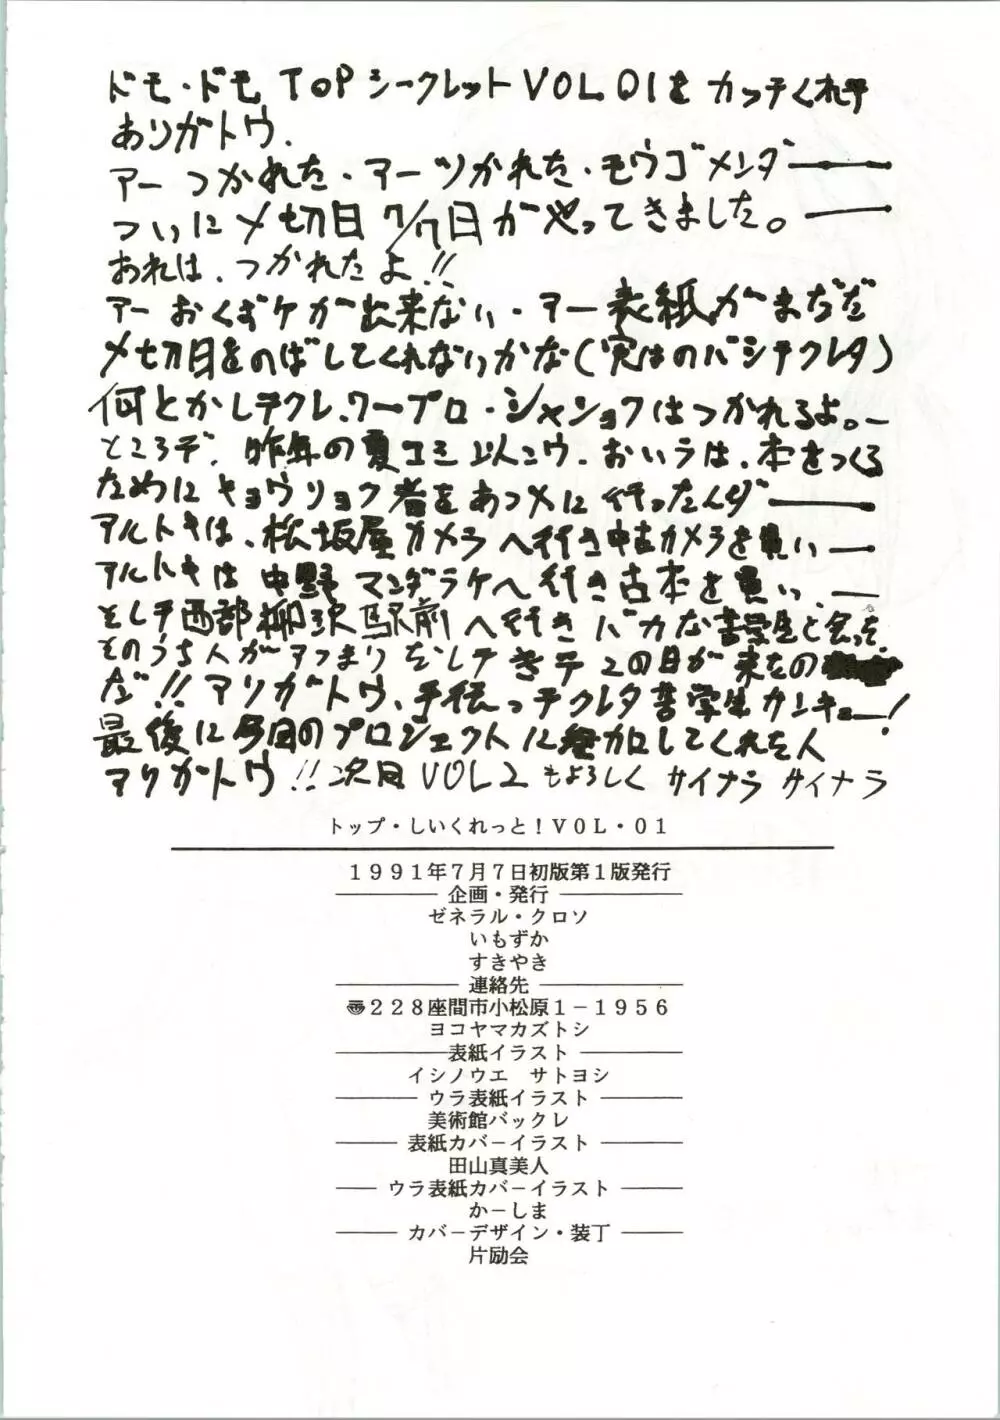 ドモ・ドモ TOPシークレットVOL.01を カッテくれテ
ありガトウ.
アー つかれた・アーツかれた・モウゴメンダー
ついに〆切日7/7日がやってきました。
おれは、つかれたよ!!
アーおくずケが出来ない・アー表紙がまだだ
〆切日をのばしてくれないかな(実はのバシテクレタ)
何とかしテクレ、ワープロ・シャショクはつかれるよ。
ところデ、昨年の夏コミ以コウ、おいラは、本をつくる
ためにキョウリョク者をあつメに行ったんダー
アルトキは、松坂屋カメラへ行き中古カメラを買い
アルトキは中野マンダラケへ行き古本を買い、
そしテ西部柳沢駅前へ行きバカな書学生と会った
そのうち人がアつまりだしテきテこの日が来たの
だ!!アリガトウ、手伝ってクレタ書学生サンキュー!
最後に今回のプロジェクトに参加してくれた人
アリガトウ!!次回VOL2もよろしくサイナラ サイナラ
トップ・しいくれっと!VOL・01
1991年7月7日初版第1版発行
企画・発行
ゼネラル・クロソ
いもずか
すきやき
連絡先
〠228座間市小松原1-1956
ヨコヤマカズトシ
表紙イラスト
イシノウエ　サトヨシ
ウラ表紙イラスト
美術館バックレ
表紙カバーイラスト
田山真美人
ウラ表紙カバーイラスト
かーしま
カバーデザイン・装丁
片励会